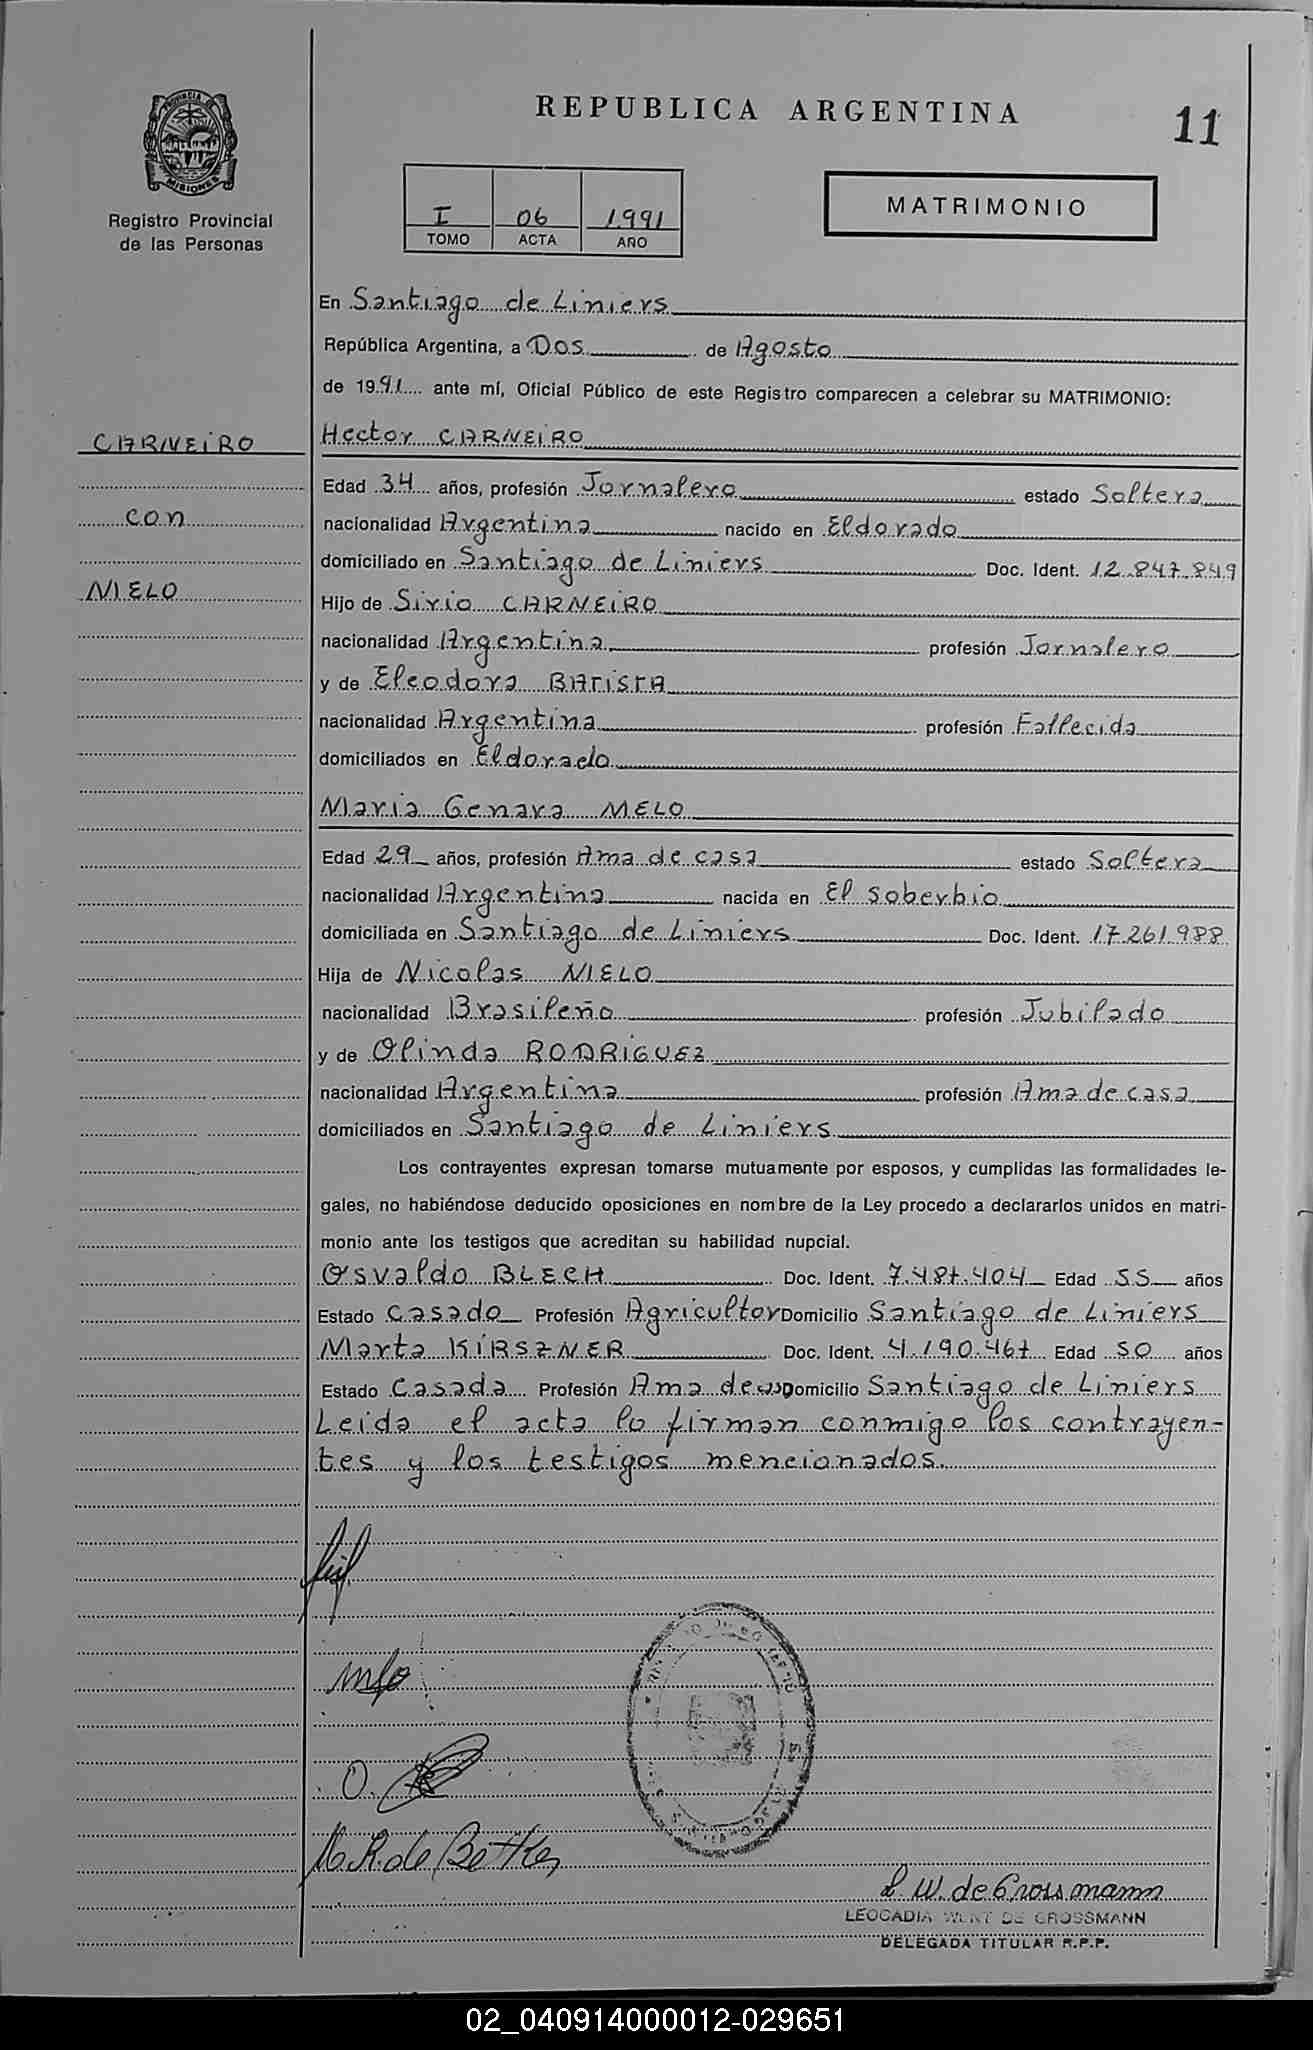 REPUBLICA ARGENTINA
11
PROVINCIA DE
MISIONES
Registro Provincial
de las Personas
I 06 1991
TOMO ACTA AÑO
MATRIMONIO
En Santiago de Liniers
República Argentina, a Dos de Agosto
de 1991 ante mí, Oficial Público de este Registro comparecen a celebrar su MATRIMONIO:
CARNEIRO
con
MELO
Hector CARNEIRO
Edad 34 años, profesión Jornalero estado Soltera
nacionalidad Argentina nacido en Eldorado
domiciliado en Santiago de Liniers Doc. Ident. 12.847.849
Hijo de Sirio CARNEIRO
nacionalidad Argentina profesión Jornalero
y de Eleodora BATISTA
nacionalidad Argentina profesión Fallecida
domiciliados en Eldorado
Maria Genara MELO
Edad 29 años, profesión Ama de casa estado Soltera
nacionalidad Argentina nacida en El Soberbio
domiciliada en Santiago de Liniers Doc. Ident. 17.261.988
Hija de Nicolas MELO
nacionalidad Brasileño profesión Jubilado
y de Olinda RODRIGUEZ
nacionalidad Argentina profesión Ama de casa
domiciliados en Santiago de Liniers
Los contrayentes expresan tomarse mutuamente por esposos, y cumplidas las formalidades le-
gales, no habiéndose deducido oposiciones en nombre de la Ley procedo a declararlos unidos en matri-
monio ante los testigos que acreditan su habilidad nupcial.
Osvaldo BLECH Doc. Ident. 7.487.404 Edad 55 años
Estado Casado Profesión Agricultor Domicilio Santiago de Liniers
Marta KIRSZNER Doc. Ident. 4.190.467 Edad 50 años
Estado Casada Profesión Ama de casa Domicilio Santiago de Liniers
Leida el acta lo firman conmigo los contrayen-
tes y los testigos mencionados.
Melo
O.
M. R. de Bottker
L. W. de Grossmann
LEOCADIA WENT DE GROSSMANN
DELEGADA TITULAR R.P.P.
02_040914000012-029651